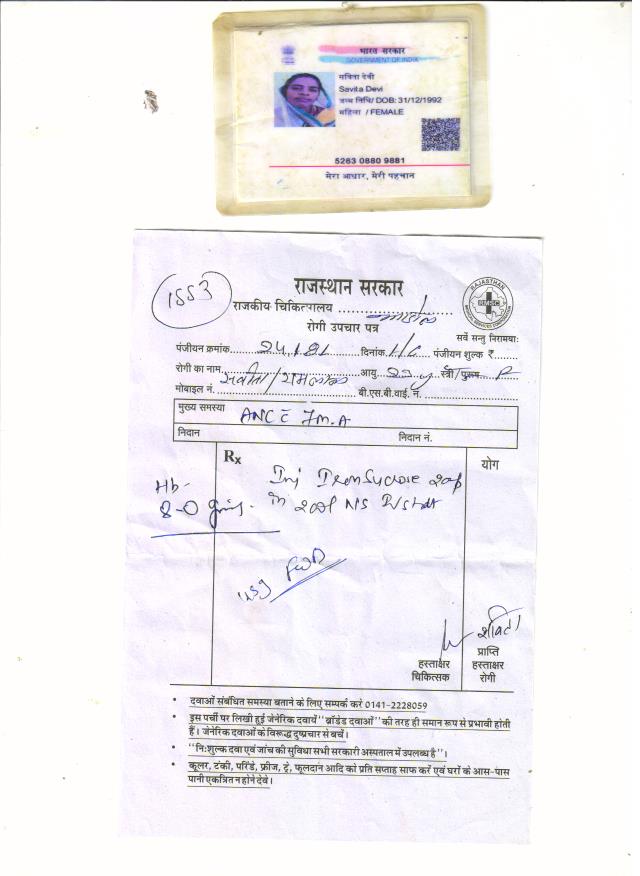 भारत सरकार
GOVERNMENT OF INDIA
सविता देवी
Savita Devi
जन्म तिथि/ DOB: 31/12/1992
महिला / FEMALE
5263 0880 9881
मेरा आधार, मेरी पहचान
1553
राजस्थान सरकार
RAJASTHAN
RMSC
MEDICAL SERVICES CORPORATION
राजकीय चिकित्सालय
रोगी उपचार पत्र
सर्वे सन्तु निरामयाः
पंजीयन क्रमांक 24181 दिनांक 1/6 पंजीयन शुल्क ₹
रोगी का नाम सवीता/रामलाल आयु स्त्री/पुरूष F
मोबाइल नं. बी.एस.बी.वाई. नं.
मुख्य समस्या ANC c 7m.A
निदान निदान नं.
Rx योग
Hb-
8-0 gm.
Inj Iron Sucrose
in NS IV stat
usg FWB
सविता
हस्ताक्षर चिकित्सक
प्राप्ति हस्ताक्षर रोगी
• दवाओं संबंधित समस्या बताने के लिए सम्पर्क करे 0141-2228059
• इस पर्ची पर लिखी हुई जेनेरिक दवायें "ब्रांडेड दवाओं" की तरह ही समान रूप से प्रभावी होती
हैं। जेनेरिक दवाओं के विरूद्ध दुष्प्रचार से बचें।
• "निःशुल्क दवा एवं जांच की सुविधा सभी सरकारी अस्पताल में उपलब्ध है"।
• कूलर, टंकी, परिंडे, फ्रीज, ट्रे, फूलदान आदि को प्रति सप्ताह साफ करें एवं घरों के आस-पास
पानी एकत्रित न होने देवे।